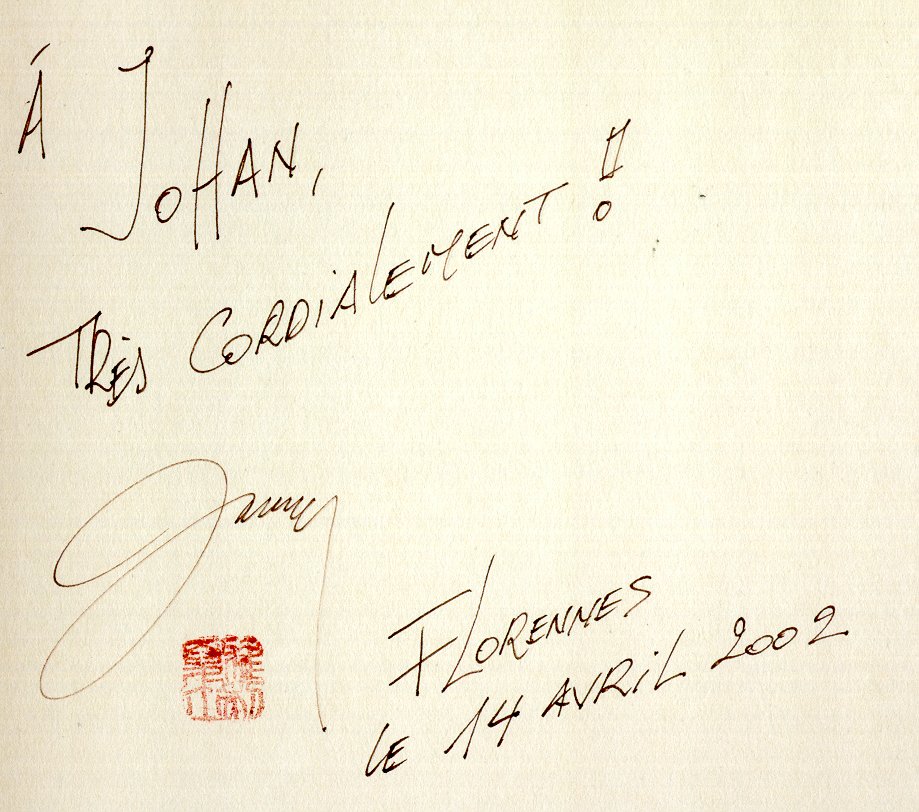 Á JOHAN,
TRÈS CORDIALEMENT !!
FLORENNES
LE 14 AVRIL 2002